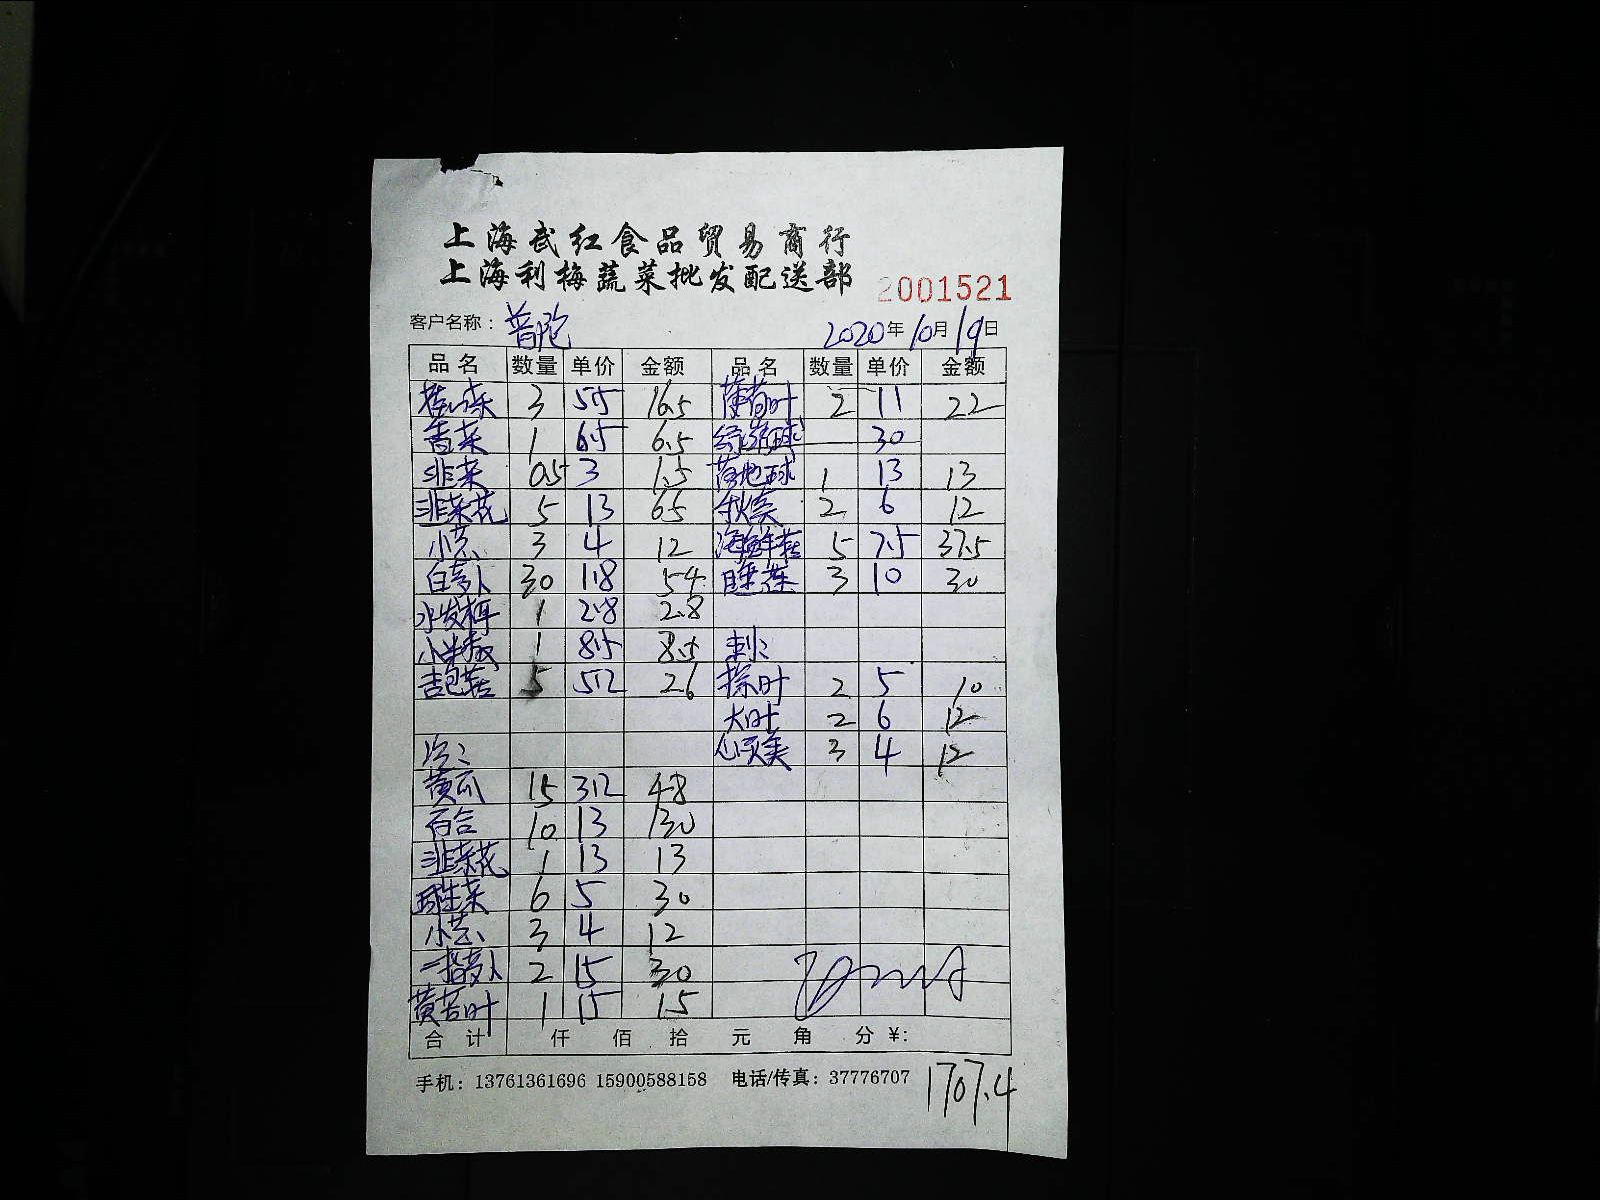 上海武红食品贸易商行
上海利梅蔬菜批发配送部
2001521
客户名称：普陀
2020年10月19日
品名 数量 单价 金额 品名 数量 单价 金额
3 5.5 16.5 薄荷叶 2 11 22
香菜 1 6.5 6.5 30
韭菜 0.5 3 1.5 落地球 1 13 13
韭菜花 5 13 65 秋葵 2 6 12
小葱 3 4 12 海鲜菇 5 7.5 37.5
白萝卜 30 1.8 54 睡莲 3 10 30
水发 1 2.8 2.8
小米椒 1 8.5 8.5 刺：
杏包菇 5 5.2 26 棕叶 2 5 10
大叶 2 6 12
冷： 心灵美 3 4 12
黄瓜 15 3.2 48
百合 10 13 130
韭菜花 1 13 13
球生菜 6 5 30
小葱 3 4 12
一指萝卜 2 15 30
黄苦叶 1 15 15
合计 仟 佰 拾 元 角 分 ¥:
手机：13761361696 15900588158 电话/传真：37776707
1707.4